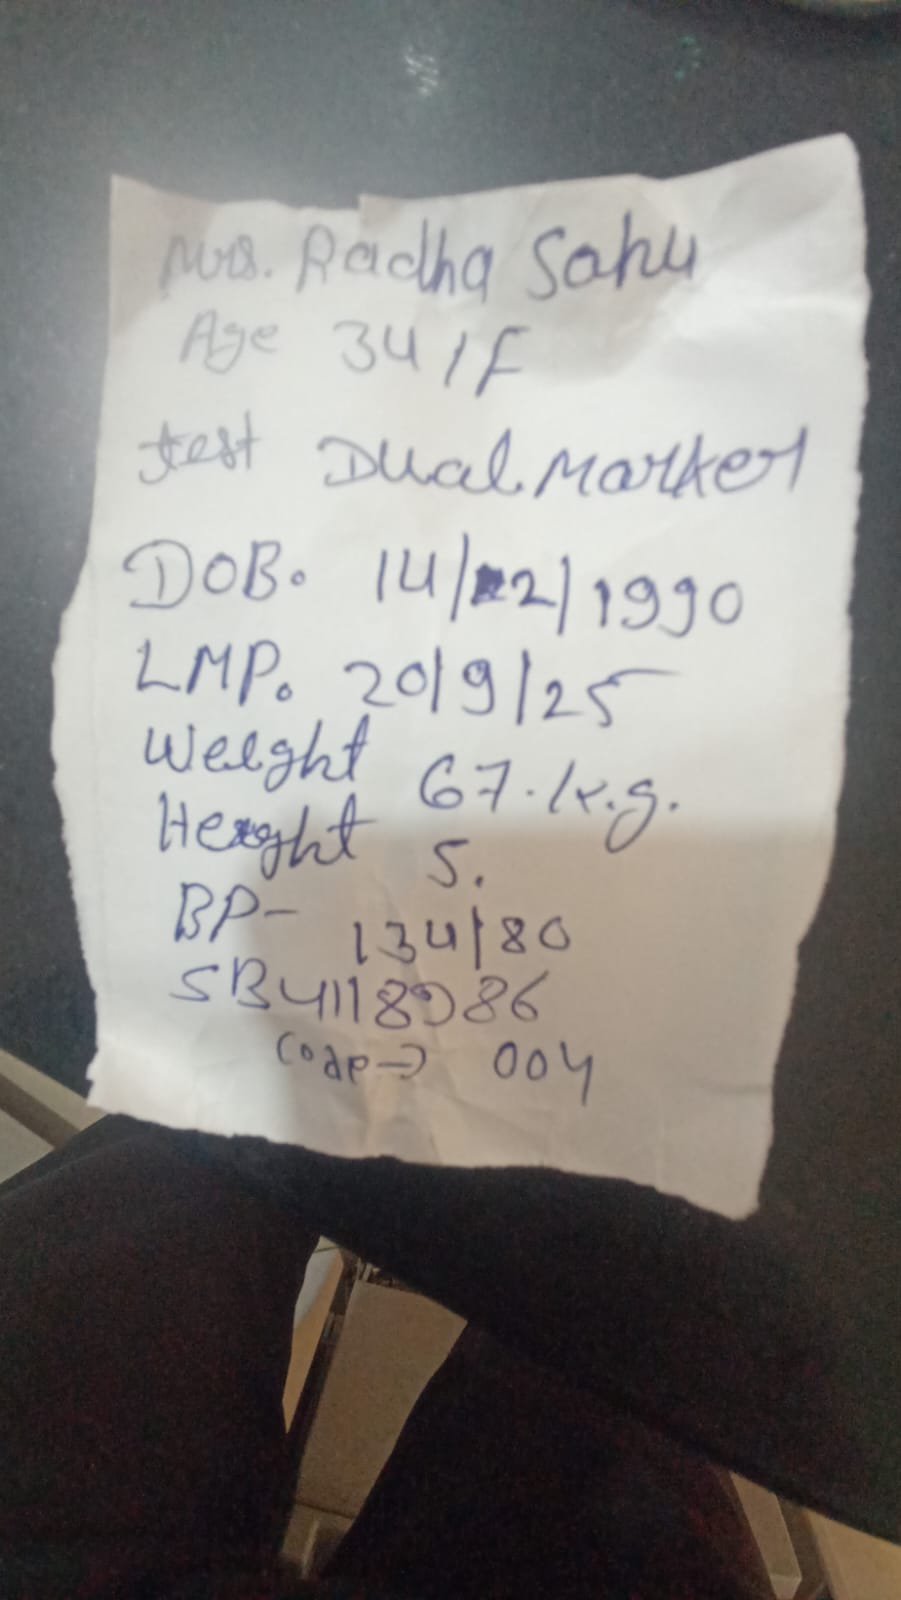 Mrs. Radha Sahu
Age 34/F
test Dual Marker
DOB. 14/2/1990
LMP. 20/9/25
Weight 67.k.g.
Height 5.
BP- 134/80
SB4118986
Code→ 004